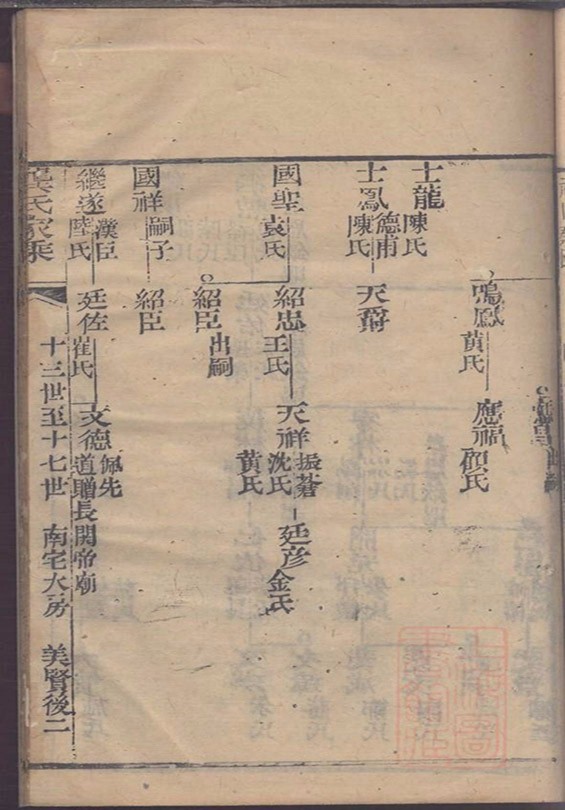 鳴鳳 黃氏 應福 顧氏
士龍 陳氏
士鳳 德甫 陳氏 天爵
國聖 袁氏 紹忠 王氏 天祥 振蒼 沈氏 黃氏 廷彦 金氏
紹臣 出嗣
國祥 嗣子 紹臣
繼遂 漢臣 陸氏 廷佐 崔氏 文德 佩先 道贈長関帝廟
氏家乘 十三世至十七世 南宅大房 美賢後二